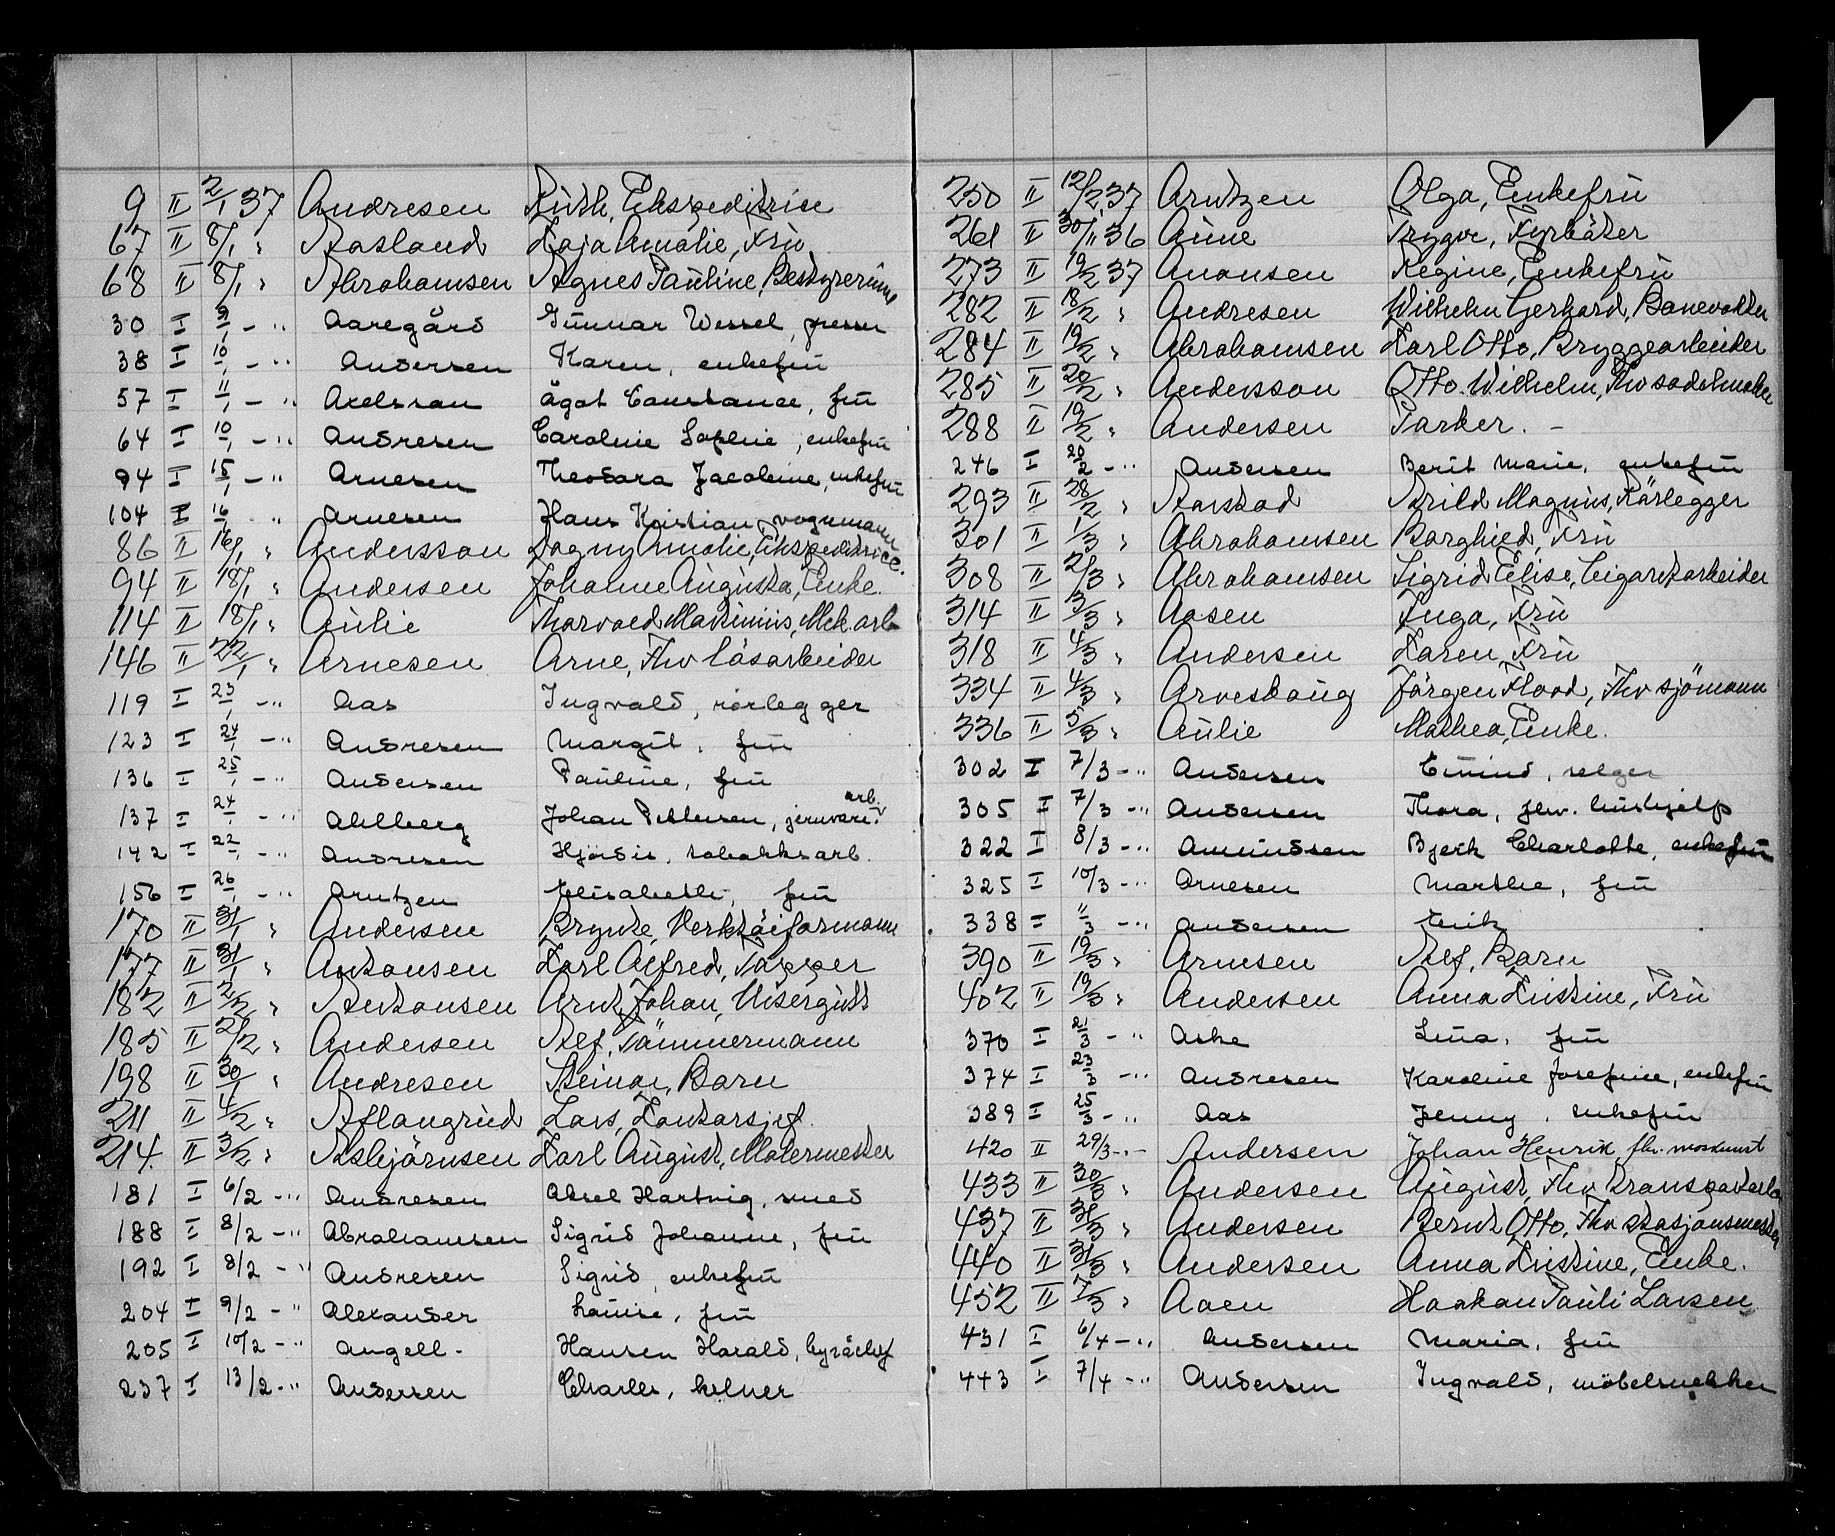 9 II 2/1 37 Andresen Ruth, Ekspeditrise
67 II 8/1 " Aasland Kaja Amalie, Fru
68 II 8/1 " Abrahamsen Agnes Pauline, Bestyrerinne
30 I 9/1 - " Aaregård Gunnar Wessel, presser
38 I 10/1 - " Andersen Karen, enkefru
57 I 11/1 - " Axelsson Ågot Constance, fru
64 I 10/1 - " Andresen Caroline Sophie, enkefru
94 I 15/1 - " Arnesen Theodora Jacobine, enkefru
104 I 16/1 " Arnesen Hans Kristian, vognmann
86 II 16/1 " Andersson Dagny Amalie, Ekspeditrice.
94 II 18/1 " Andersen Johanne Augusta, Enke.
114 II 18/1 " Aulie Thorvald Maximius, Mek. arb
146 II 22/1 " Arnesen Arne, Fhv låsarbeider
119 I 23/1 - " Aas Ingvald, rørlegger
123 I 24/1 - " Andresen Margit, fru
136 I 25/1 - " Andersen Pauline, fru
137 I 24/1 - " Ahlberg Johan Pettersen, jernvare arb.
142 I 22/1 - " Andresen Hjördis, tobakksarb.
156 I 26/1 - " Arntzen Elisabeth, fru
170 II 31/1 " Andersen Brynte, Verktöiformann
177 II 31/1 " Antonsen Karl Alfred, Tapper
182 II 2/2 " Antonsen Arnt Johan, Visergutt
185 II 2/2 " Andersen Alf, Tömmermann
198 II 30/1 " Andresen Steinar, Barn
211 II 4/2 " Aflangrud Lars, Kontorsjef.
214. II 3/2 " Asbjörnsen Karl August, Malermester
181 I 6/2 - " Andresen Aksel Hartvig, smed
188 I 8/2 - " Abrahamsen Sigrid Johanne, fru
192 I 8/2 - " Andresen Sigrid, enkefru
204 I 9/2 - " Alexander Louise, fru
205 I 10/2 - " Angell - Hansen Harald, byråchef
237 I 13/2 - " Andersen Charles, kelner
250 II 12/2 37 Arntzen Olga, Enkefru
261 II 30/11 36 Aune Trygve, Fyrbøter
273 II 19/2 37 Anonsen Regine, Enkefru
282 II 18/2 " Andresen Wilhelm Gerhard, Banevokter
284 II 19/2 " Abrahamsen Karl Otto, Bryggearbeider
285 II 20/2 " Andersson Otto Wilhelm, Fhv sadelmaker
288 II 19/2 " Andersen Parker. -
246 I 20/2 - " Andersen Berit Marie, enkefru
293 II 28/2 " Aarstad Arild Magnus, Rörlegger
301 II 1/3 " Abrahamsen Borghild, Fru
308 II 2/3 " Abrahamsen Sigrid Elise, Cigaretarbeider
314 II 3/3 " Aasen Inga, Fru
318 II 4/3 " Andersen Karen, Fru
334 II 4/3 " Arveskoug Jörgen Flood, Fhv sjömann
336 II 5/3 " Aulie Mathea, Enke.
302 I 7/3 - " Andersen Edvind, selger
305 I 7/3 - " Andersen Thora, fhv. hushjelp
322 I 8/3 - " Amundsen Bjerk Charlotte, enkefru
325 I 10/3 - " Arnesen Marthe, fru
338 I 11/3 - " Andersen Erik
390 II 19/3 " Arnesen Alf, Barn
402 II 19/3 " Andersen Anna Kristine, Fru
370 I 21/3 - " Aske Lina, fru
374 I 23/3 - " Andresen Karoline Josefine, enkefru
389 I 25/3 - " Aas Jenny, enkefru
420 II 29/3 - " Andersen Johan Henrik, fhv. maskinist
433 II 30/3 " Andersen August, Fhv transportarb
437 II 31/3 " Andersen Bernt Otto, Fhv stasjonsmester
440 II 31/3 " Andersen Anna Kristine, Enke.
452 II 7/3 " Aaen Haakon Pauli Larsen
431 I 6/4 - " Andersen Maria, fru
443 I 7/4 - " Andersen Ingvald, möbelsnekker